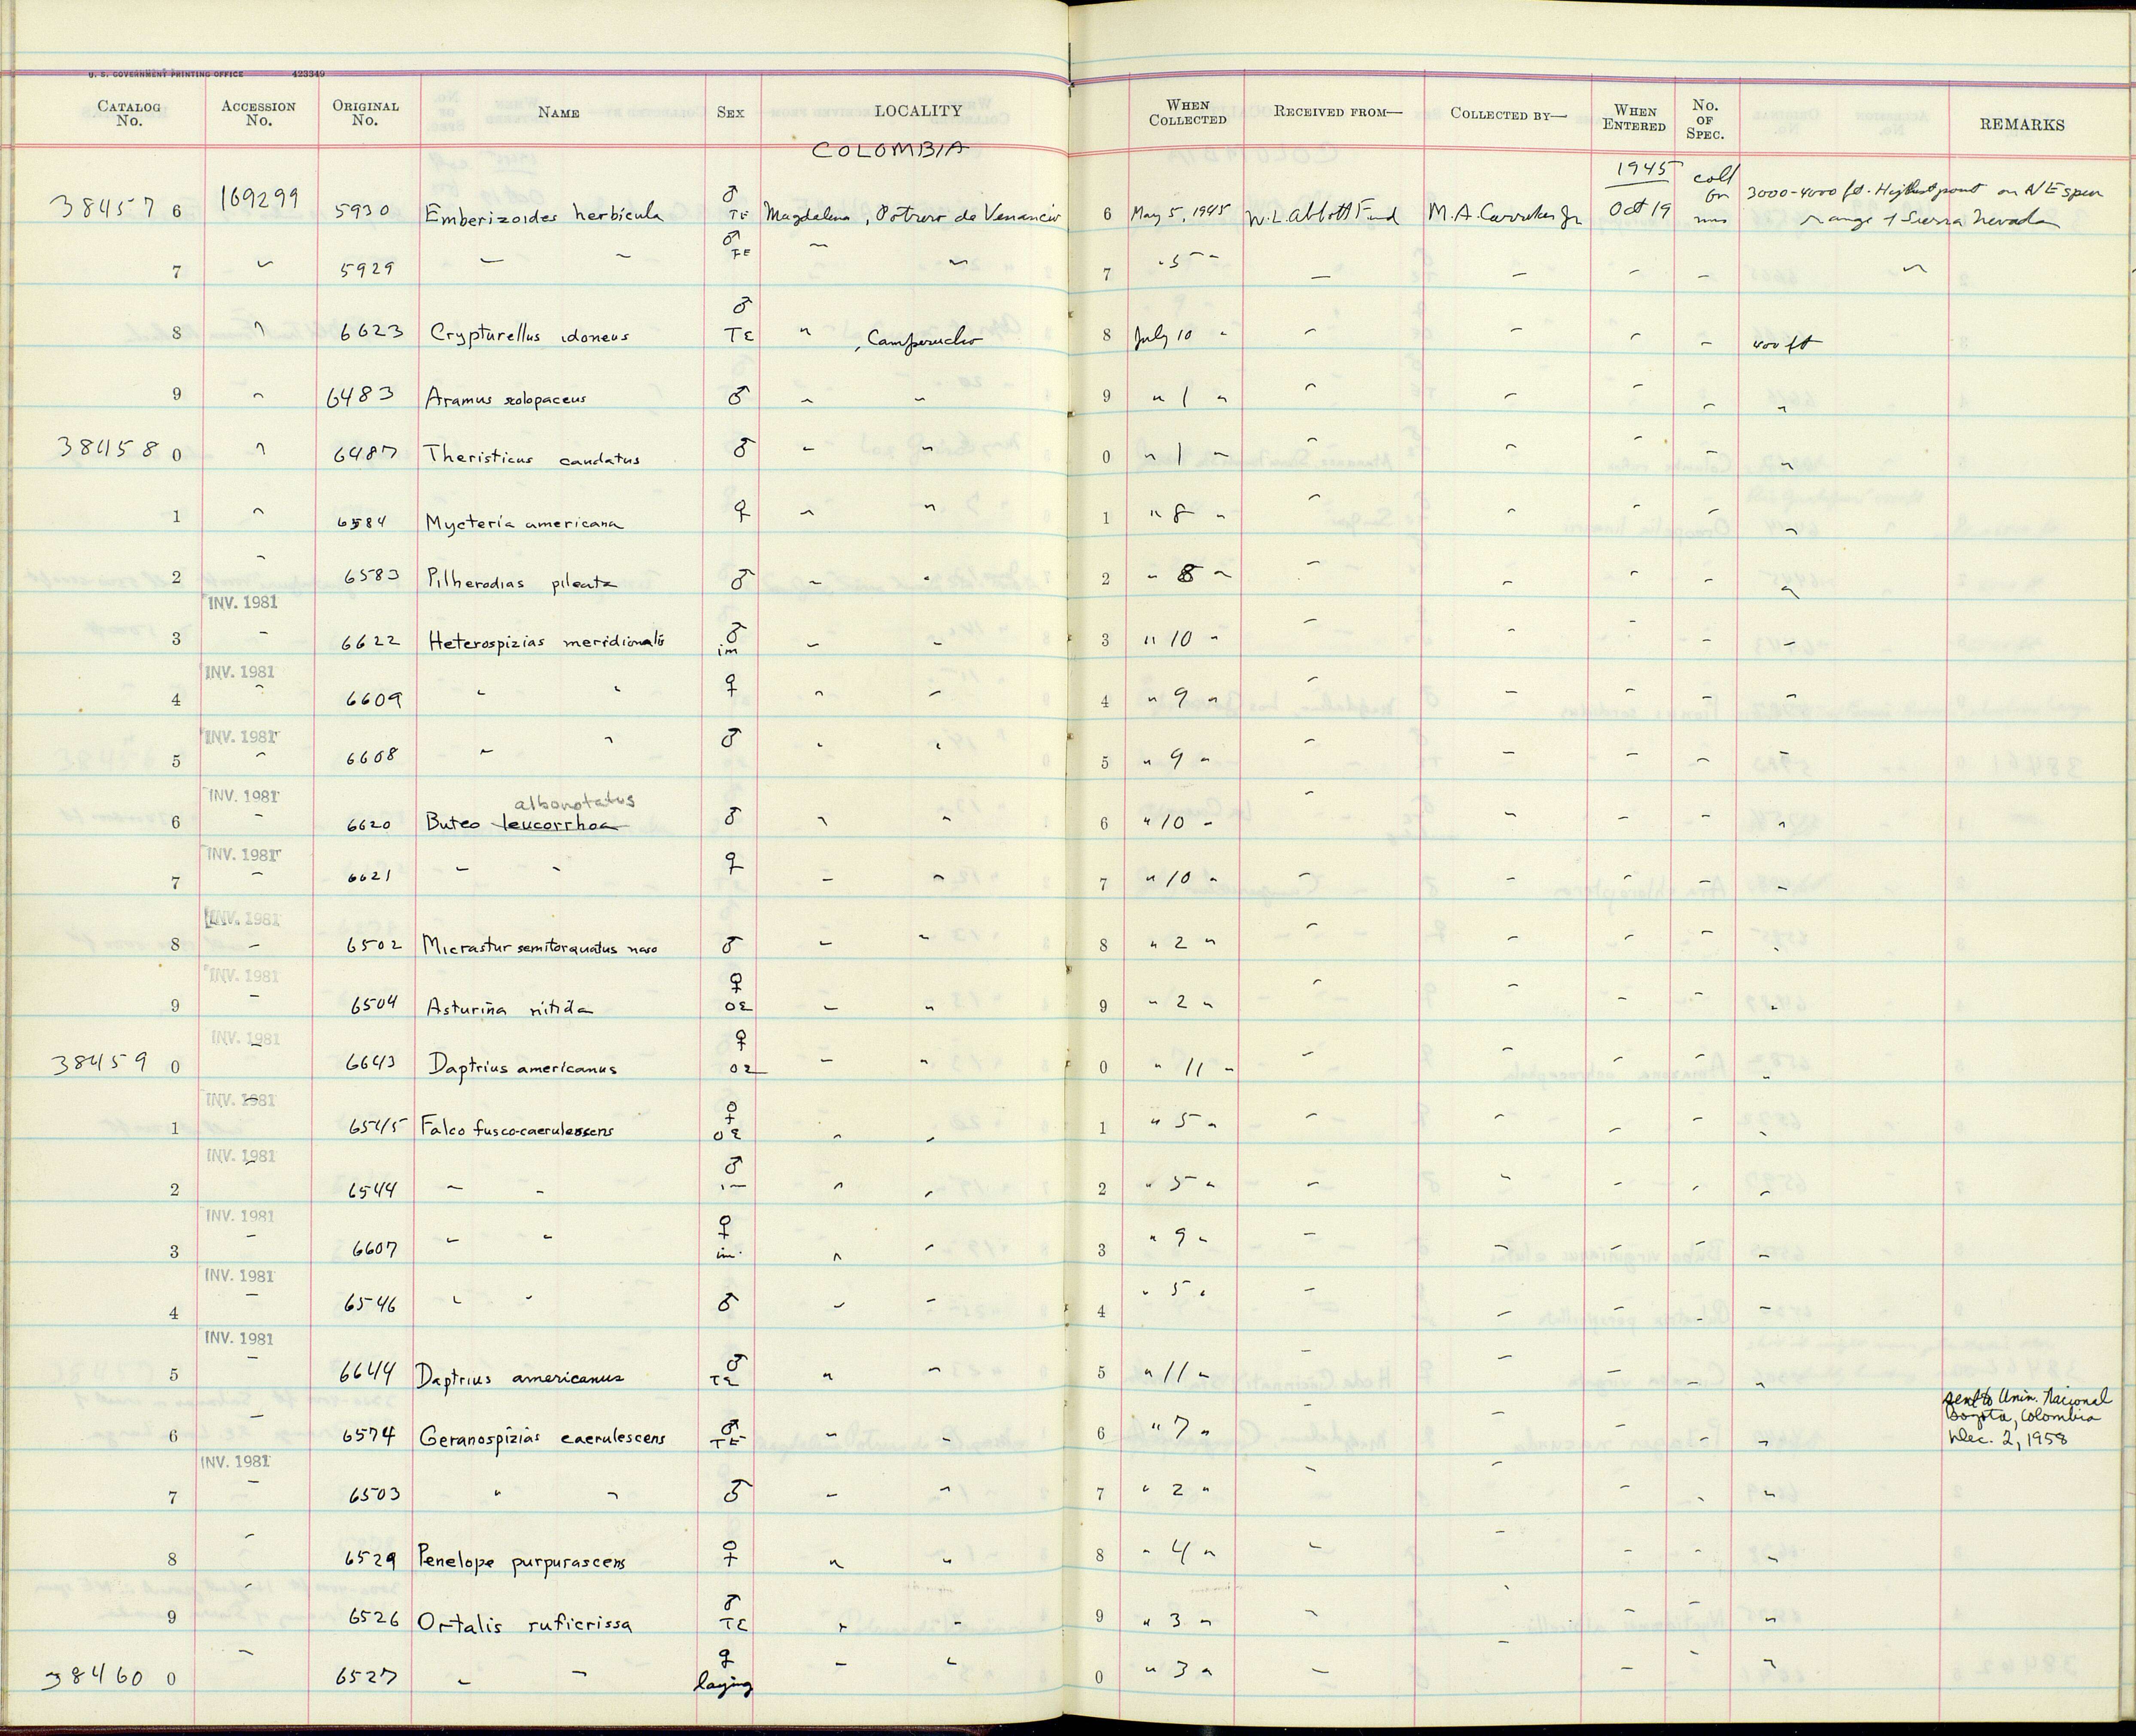 U. S. GOVERNMENT PRINTING OFFICE 423349
CATALOG No. ACCESSION No. ORIGINAL No. NAME SEX LOCALITY WHEN COLLECTED RECEIVED FROM— COLLECTED BY— WHEN ENTERED No. OF SPEC. REMARKS
COLOMBIA
38457 6 169299 5930 Emberizoides herbicula ♂ TE Magdalena, Potrero de Venancio 6 May 5, 1945 W. L. Abbott Fund M. A. Carriker Jr 1945 Oct 19 coll 3000-4000 ft. Highest point on NE spur range of Sierra Nevada
7 " 5929 " " ♂ TE " " 7 " 5 " " " " " "
8 " 6623 Crypturellus idoneus ♂ TE " , Camperucho 8 July 10 " " " " " 400 ft
9 " 6483 Aramus scolopaceus ♂ " " 9 " 1 " " " " " "
38458 0 " 6487 Theristicus caudatus ♂ " " 0 " 1 " " " " " "
1 " 6584 Mycteria americana ♀ " " 1 " 8 " " " " " "
2 " 6583 Pilherodias pileata ♂ " " 2 " 8 " " " " " "
INV. 1981
3 " 6622 Heterospizias meridionalis ♂ im " " 3 " 10 " " " " " "
INV. 1981
4 " 6609 " " ♀ " " 4 " 9 " " " " " "
INV. 1981
5 " 6608 " " ♂ " " 5 " 9 " " " " " "
INV. 1981 albonotatus
6 " 6620 Buteo leucorrhoa ♂ " " 6 " 10 " " " " " "
INV. 1981
7 " 6621 " " ♀ " " 7 " 10 " " " " " "
INV. 1981
8 " 6502 Micrastur semitorquatus naso ♂ " " 8 " 2 " " " " " "
INV. 1981
9 " 6504 Asturina nitida ♀ OE " " 9 " 2 " " " " " "
INV. 1981
38459 0 " 6643 Daptrius americanus ♀ OE " " 0 " 11 " " " " " "
INV. 1981
1 " 6545 Falco fusco-caerulescens ♀ OE " " 1 " 5 " " " " " "
INV. 1981
2 " 6544 " " ♂ im " " 2 " 5 " " " " " "
INV. 1981
3 " 6607 " " ♀ im. " " 3 " 9 " " " " " "
INV. 1981
4 " 6546 " " ♂ " " 4 " 5 " " " " " "
INV. 1981
5 " 6644 Daptrius americanus ♂ TE " " 5 " 11 " " " " " "
6 " 6574 Geranospizias caerulescens ♂ TE " " 6 " 7 " " " " " " sent to Univ. Nacional
Bogota, Colombia
Dec. 2, 1958
INV. 1981
7 " 6503 " " ♂ " " 7 " 2 " " " " " "
8 " 6529 Penelope purpurascens ♀ " " 8 " 4 " " " " " "
9 " 6526 Ortalis ruficrissa ♂ TE " " 9 " 3 " " " " " "
38460 0 " 6527 " " ♀ laying " " 0 " 3 " " " " "